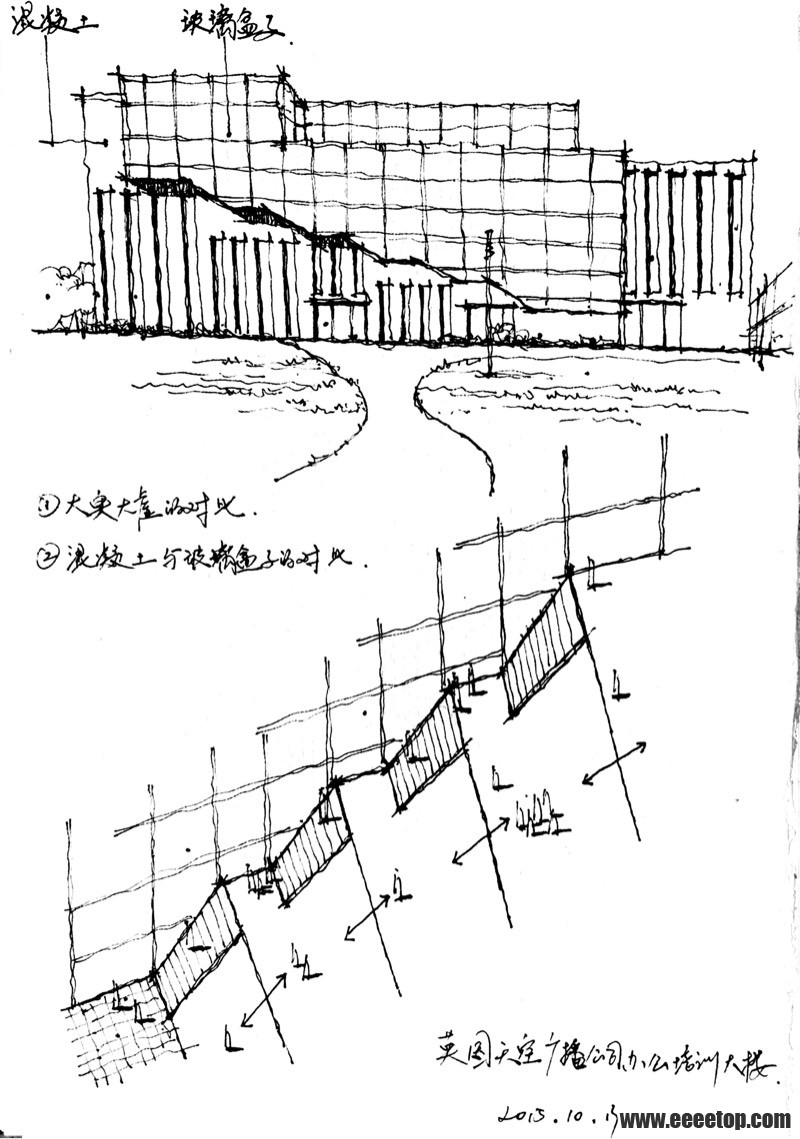 混凝土
玻璃盒子
①大实大虚的对比.
②混凝土与玻璃盒子的对比.
英国天空广播公司办公培训大楼.
2015.10.
www.eeeetop.com